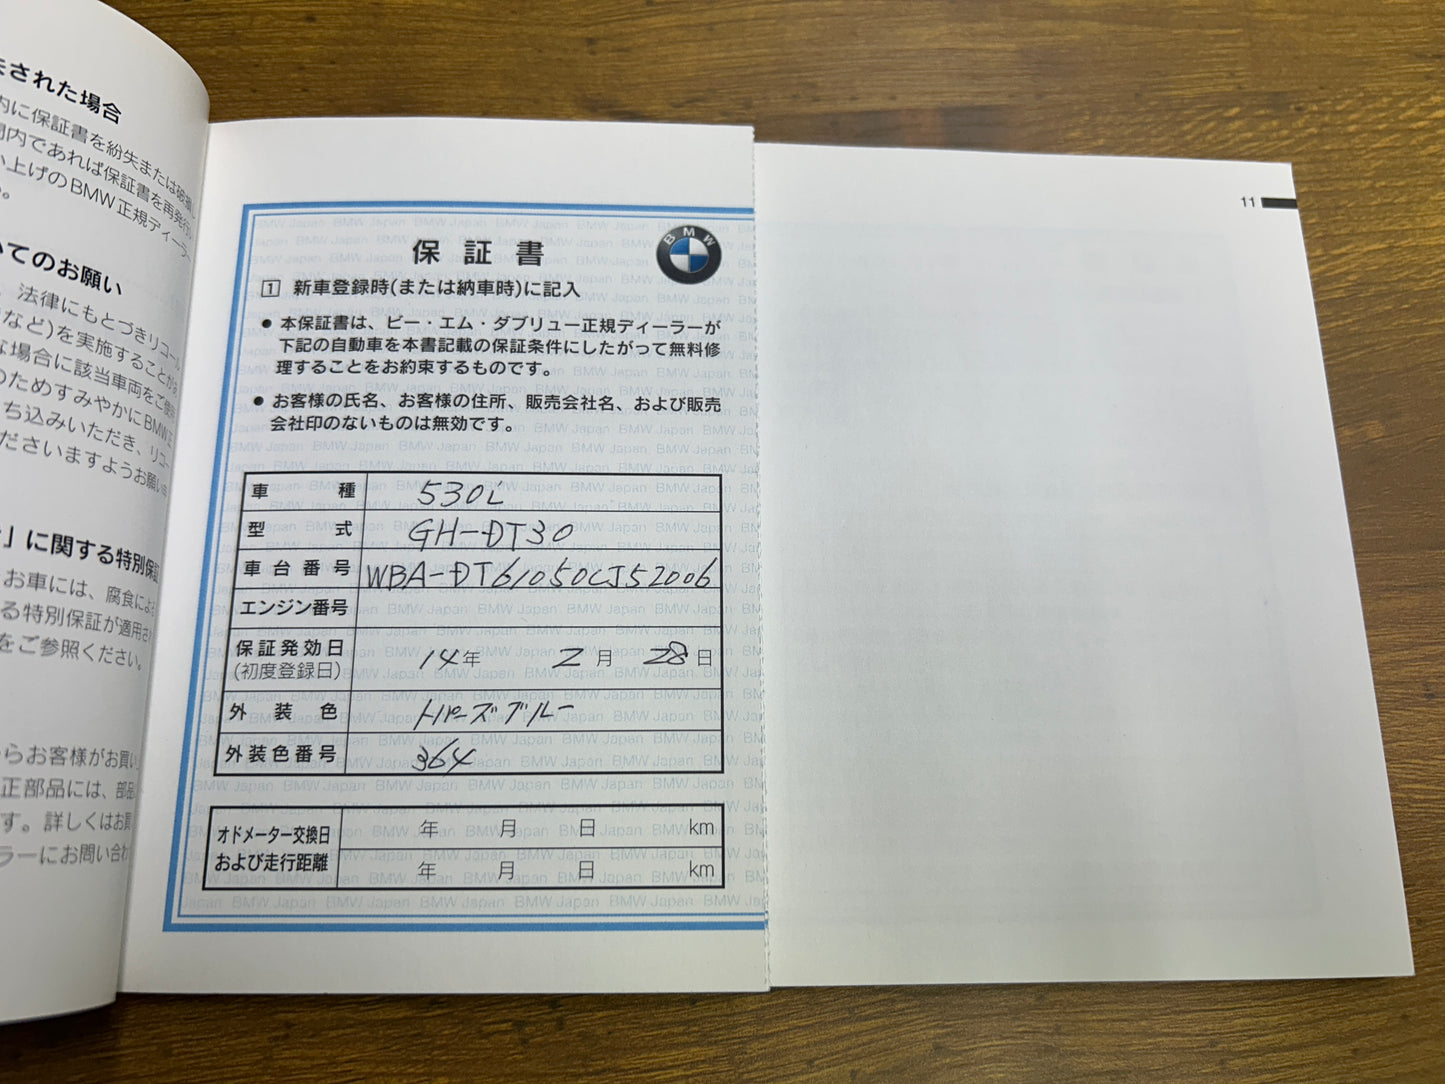 された場合
内に保証書を紛失または破損し
間内であれば保証書を再発行い
い上げのBMW正規ディーラー
。
いてのお願い
、法律にもとづきリコール
など)を実施することがあ
な場合に該当車両をご使用
のためすみやかにBMW正
ち込みいただき、リコー
ださいますようお願い申
」に関する特別保証
お車には、腐食によ
る特別保証が適用さ
をご参照ください。
からお客様がお買い
正部品には、部品
す。詳しくはお買
ラーにお問い合わ
保証書
BMW
1 新車登録時(または納車時)に記入
● 本保証書は、ビー・エム・ダブリュー正規ディーラーが
下記の自動車を本書記載の保証条件にしたがって無料修
理することをお約束するものです。
● お客様の氏名、お客様の住所、販売会社名、および販売
会社印のないものは無効です。
車種 530i
型式 GH-DT30
車台番号 WBA-DT61050CJ52006
エンジン番号
保証発効日 14年 2月 28日
(初度登録日)
外装色 トパーズブルー
外装色番号 364
オドメーター交換日 年 月 日 km
および走行距離 年 月 日 km
11